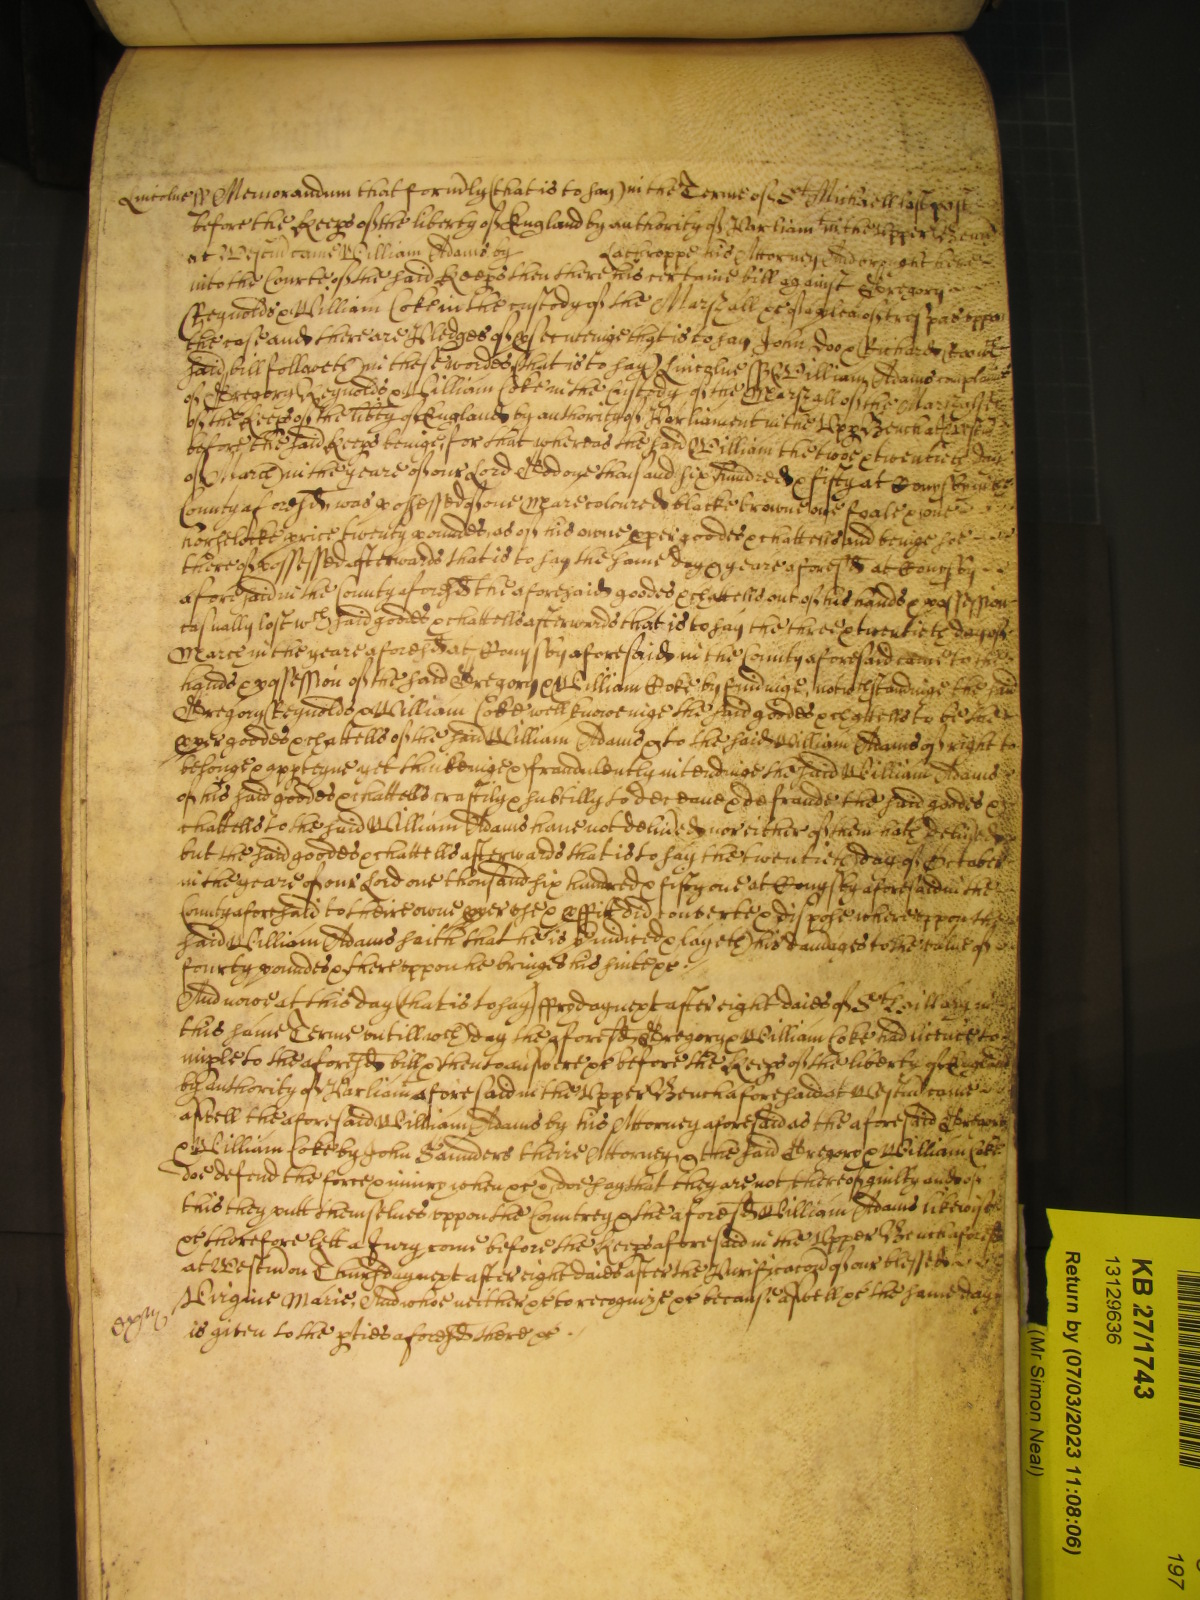 Lincolne ss Memorandum that form̄ly (that is to say) in the Terme of St Michaell last past
before the Keeps of the liberty of England by authority of Parliamt in the Upper Bench
at Westm̄ came William Adams by Lathroppe his Attorney And brought here
into the Courte of the said Keeps then there his certaine bill against Gregory
Reynolds & William Coke in the custody of the Marshall &c of a plea of trespas uppon
the case and there are Pledges of psecutinge that is to say John Doo & Richard Roo wch
said bill followeth in these wordes (that is to say) Lincolne ss William Adams complaines
of Gregory Reynolds & William Coke in the Custody of the Marshall of the Marshalsea
of the Keeps of the libty of England by authority of Parliament in the Upp Bench at Westm̄
before the said Keeps beinge, for that whereas the said William the twoe & twentieth day
of March in the yeare of our Lord God one thousand six hundred & fifty at
County aforesd was possessed of one Mare coloured blacke browne one foale & one
price twenty poundes as of his owne pper goodes & chattells and beinge soe
thereof possessed afterwards that is to say the same day & yeare aforesd at
aforesaid in the County aforesd the aforesaid goodes & chattells out of his hands & possession
casually lost wch said goodes & chattells afterwards that is to say the three & twentieth day of
March in the yeare aforesd at aforesaid in the County aforesaid came to the
hands & possession of the said Gregory & William Coke by findinge, notwthstandinge the said
Gregory Reynolds & William Coke well knoweinge the said goodes & chattells to be the
pper goodes & chattells of the said William Adams & to the said William Adams of right to
belonge & apperteyne yet thinkeinge & fraudulently intendinge the said William Adams
of his said goodes & chattells craftily & subtilly to deceave & defraude the said goodes &
chattells to the said William Adams have not delivēd nor either of them hath delivēd
but the said goodes & chattells afterwards that is to say the twentieth day of October
in the yeare of our Lord one thousand six hundred & fifty one at aforesaid in the
County aforesaid to theire owne pper use & did converte & dispose whereuppon the
said William Adams saith that he is indiced & layeth his damages to the value of
fourty poundes & thereuppon he bringes his suite &c.
And nowe at this day (that is to say) ffryday next after eight daies of St Hillary in
this same Terme untill wch day the aforesd Gregory & William Coke had licence to
imple to the aforesd bill & then to answere &c before the Keeps of the liberty of England
by authority of Parliam aforesaid in the Upper Bench aforesaid at Westm̄ came
aswell the aforesaid William Adams by his Attorney aforesaid as the aforesaid Gregory
& William Coke by John Saunders theire Attorney & the said Gregory & William Coke
doe defend the force & iniury when &c & doe say that they are not thereof guilty and of
this they putt themselves uppon the Countrey & the aforesd William Adams likewise
&c therefore lett a Jury come before the Keeps aforesaid in the Upper Bench aforesd
at Westm̄ on Thursday next after eight daies after the Purificacon of our blessed
Virgine Marie, And whoe neither &c to recognize &c because aswell &c the same day
is given to the pties aforesd there &c
KB 27/1743
13129636
Return by (07/03/2023 11:08:06)
(Mr Simon Neal)
197